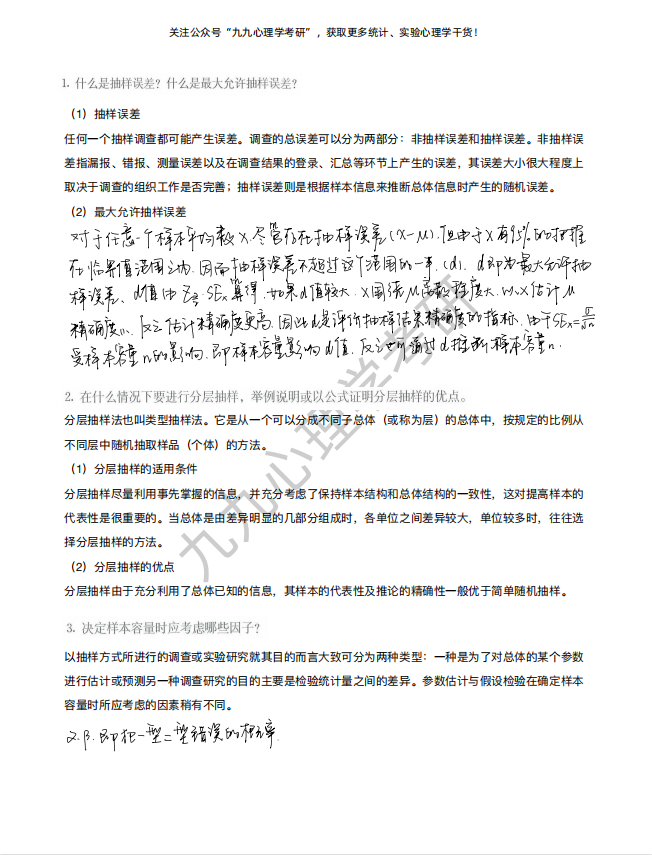 关注公众号“九九心理学考研”，获取更多统计、实验心理学干货！
1. 什么是抽样误差？什么是最大允许抽样误差？
（1）抽样误差
任何一个抽样调查都可能产生误差。调查的总误差可以分为两部分：非抽样误差和抽样误差。非抽样误
差指漏报、错报、测量误差以及在调查结果的登录、汇总等环节上产生的误差，其误差大小很大程度上
取决于调查的组织工作是否完善；抽样误差则是根据样本信息来推断总体信息时产生的随机误差。
（2）最大允许抽样误差
对于任意一个样本平均数X，尽管存在抽样误差(X-μ)，但由于X有95%的把握
在临界值范围之内，因而抽样误差不超过这个范围的一半(d)，d即为最大允许抽
样误差、d值由 SE 算得，如果d值较大，X围绕μ 程度大，以X估计μ
精确度小、反之估计精确度更高，因此d是评价抽样结果精确度的指标，由于SEx=σ/√n
受样本容量n的影响，即样本容量影响d值，反之也可通过d推断样本容量n.
2. 在什么情况下要进行分层抽样，举例说明或以公式证明分层抽样的优点。
分层抽样法也叫类型抽样法。它是从一个可以分成不同子总体（或称为层）的总体中，按规定的比例从
不同层中随机抽取样品（个体）的方法。
（1）分层抽样的适用条件
分层抽样尽量利用事先掌握的信息，并充分考虑了保持样本结构和总体结构的一致性，这对提高样本的
代表性是很重要的。当总体是由差异明显的几部分组成时，各单位之间差异较大，单位较多时，往往选
择分层抽样的方法。
（2）分层抽样的优点
分层抽样由于充分利用了总体已知的信息，其样本的代表性及推论的精确性一般优于简单随机抽样。
3. 决定样本容量时应考虑哪些因子？
以抽样方式所进行的调查或实验研究就其目的而言大致可分为两种类型：一种是为了对总体的某个参数
进行估计或预测另一种调查研究的目的主要是检验统计量之间的差异。参数估计与假设检验在确定样本
容量时所应考虑的因素稍有不同。
α.β.即犯一型二型错误的概率.
九九心理学考研